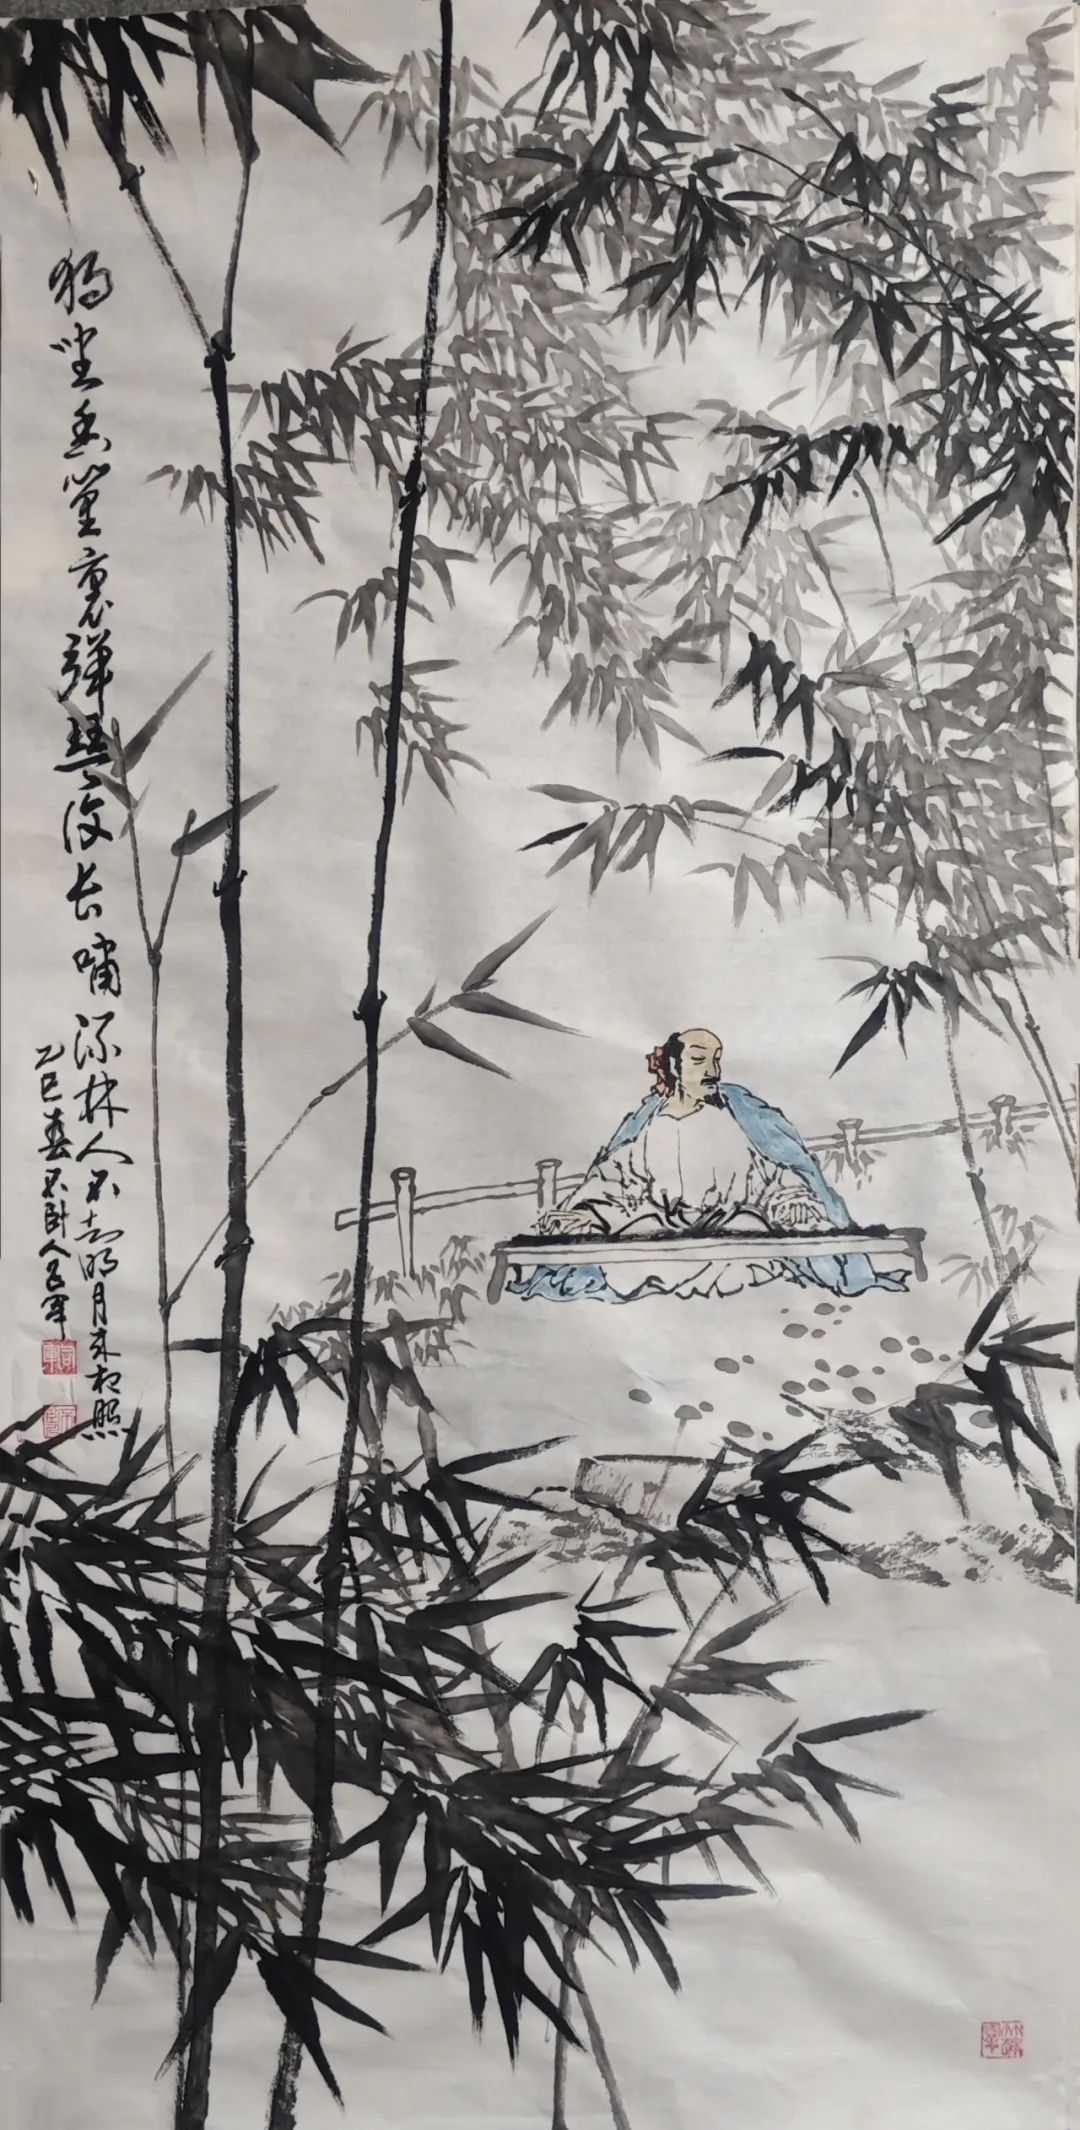 独坐幽篁裏弹琴复长嘯深林人不知明月来相照
乙巳春